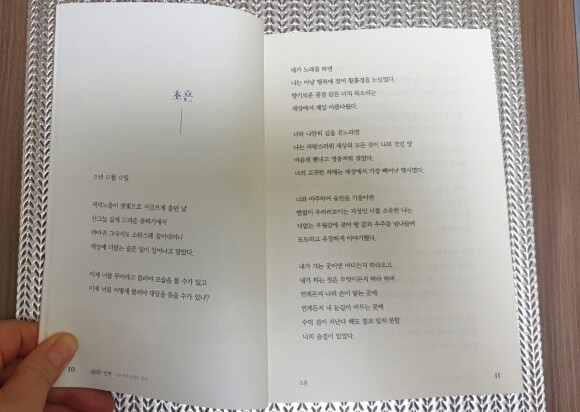 초혼
0년 0월 0일
저녁노을이 핏빛으로 서글프게 울던 날
산그늘 길게 드리운 골짜기에서
까마귀 그다지도 소란스레 짖어대더니
세상에 더없는 슬픈 일이 일어나고 말았다.
이제 너를 무어라고 불러야 모습을 볼 수가 있고
이제 너를 어떻게 불러야 대답을 들을 수가 있나?
10
네가 노래를 하면
나는 마냥 행복에 젖어 황홀경을 느닐었다.
향기로운 꿀결 같은 너의 목소리는
세상에서 제일 아름다웠다.
너와 나란히 길을 걷노라면
나는 자랑스러워 세상의 모든 것이 나의 것인 양
마음껏 뽐내고 영웅처럼 걸었다.
너의 고귀한 자태는 세상에서 가장 빼어난 맵시였다.
너와 마주하여 술잔을 기울이면
한없이 우러러보이는 지성인 너를 소유한 나는
더없는 우월감에 붙여 땅 끝과 우주를 넘나들며
도도하고 유창하게 이야기했다.
내가 가는 곳이면 어디든지 따라오고
내가 하는 짓은 무엇이든지 따라 하며
언제든지 나의 손이 닿는 곳에
언제든지 내 눈길이 머무는 곳에
수백 겁이 지난다 해도 결코 잊지 못할
너의 숨결이 있었다.
초혼
11